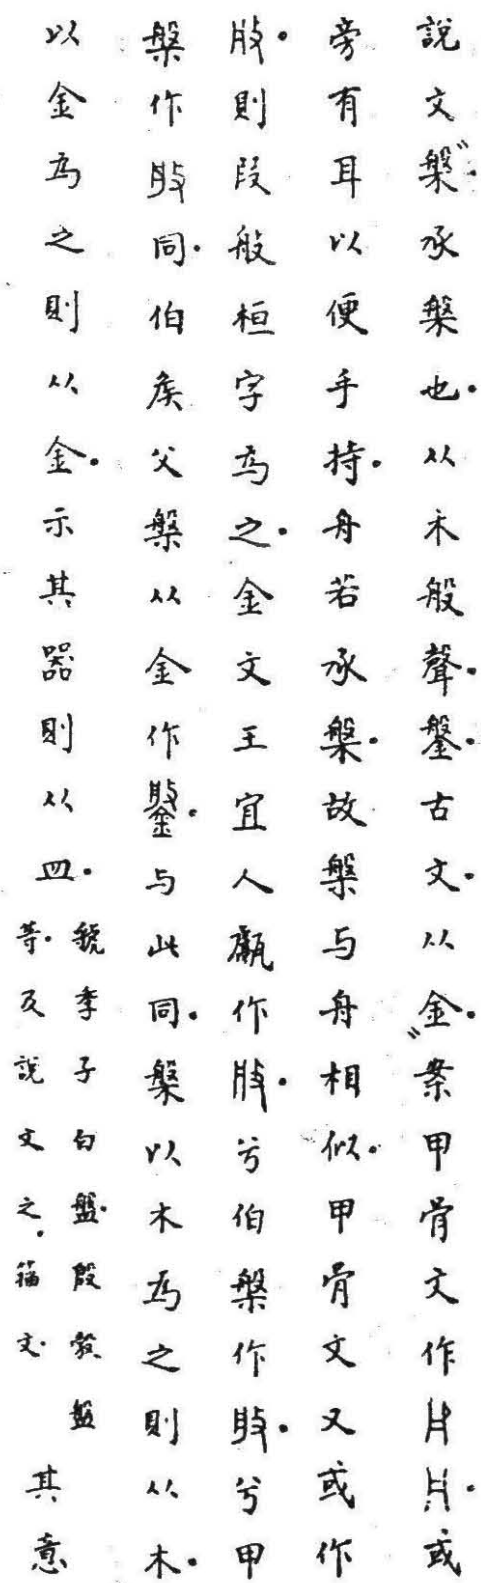 說文"槃.承槃也.从木般聲.鎜古文.从金."案甲骨文作.或
旁有耳以便手持.舟若承槃.故槃与舟相似.甲骨文又或作
.則段般桓字為之.金文王宜人甗作.兮伯槃作.兮甲
槃作同.伯矦父槃从金作.与此同.槃以木為之則从木.
以金為之則从金.示其器則从皿.
虢季子白盤.殷盤
等.及說文之.籀文.
其意